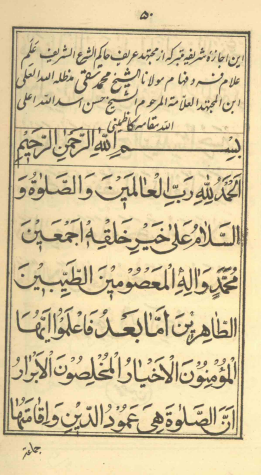 ۵۰
این اجازهٔ شریفهٔ متبرکه از مجتهد عریف حاکم الشرع الشریف علم
علام و فهام مولانا الشیخ محمد تقی مد ظله العالی
ابن المجتهد العلامة المرحوم الشیخ حسن اسد الله اعلی
الله مقامه کاظمینی
بِسْمِ اللهِ الرَّحْمٰنِ الرَّحِيْمِ
اَلْحَمْدُ لِلّٰهِ رَبِّ الْعَالَمِيْنَ وَالصَّلٰوةُ وَ
السَّلَامُ عَلٰى خَيْرِ خَلْقِهٖ اَجْمَعِيْنَ
مُحَمَّدٍ وَاٰلِهِ الْمَعْصُوْمِيْنَ الطَّيِّبِيْنَ
الطَّاهِرِيْنَ اَمَّا بَعْدُ فَاعْلَمُوْا اَيُّهَا
الْمُؤْمِنُوْنَ الْاَخْيَارُ الْمُخْلِصُوْنَ الْاَبْرَارُ
اَنَّ الصَّلٰوةَ هِيَ عَمُوْدُ الدِّيْنِ وَاِقَامَتُهَا
جماعة